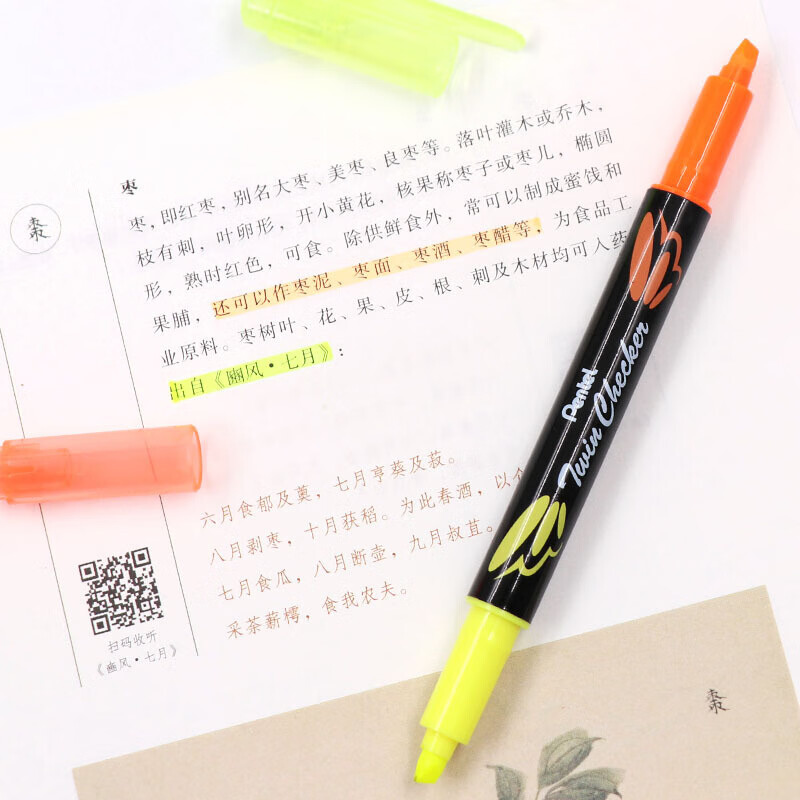 枣
枣
枣，即红枣，别名大枣、美枣、良枣等。落叶灌木或乔木，
枝有刺，叶卵形，开小黄花，核果称枣子或枣儿，椭圆
形，熟时红色，可食。除供鲜食外，常可以制成蜜饯和
果脯，还可以作枣泥、枣面、枣酒、枣醋等，为食品工
业原料。枣树叶、花、果、皮、根、刺及木材均可入药
出自《豳风·七月》：
六月食郁及薁，七月亨葵及菽。
八月剥枣，十月获稻。为此春酒，以介
七月食瓜，八月断壶，九月叔苴。
采荼薪樗，食我农夫。
扫码收听
《豳风·七月》
Pentel
Twin Checker
枣